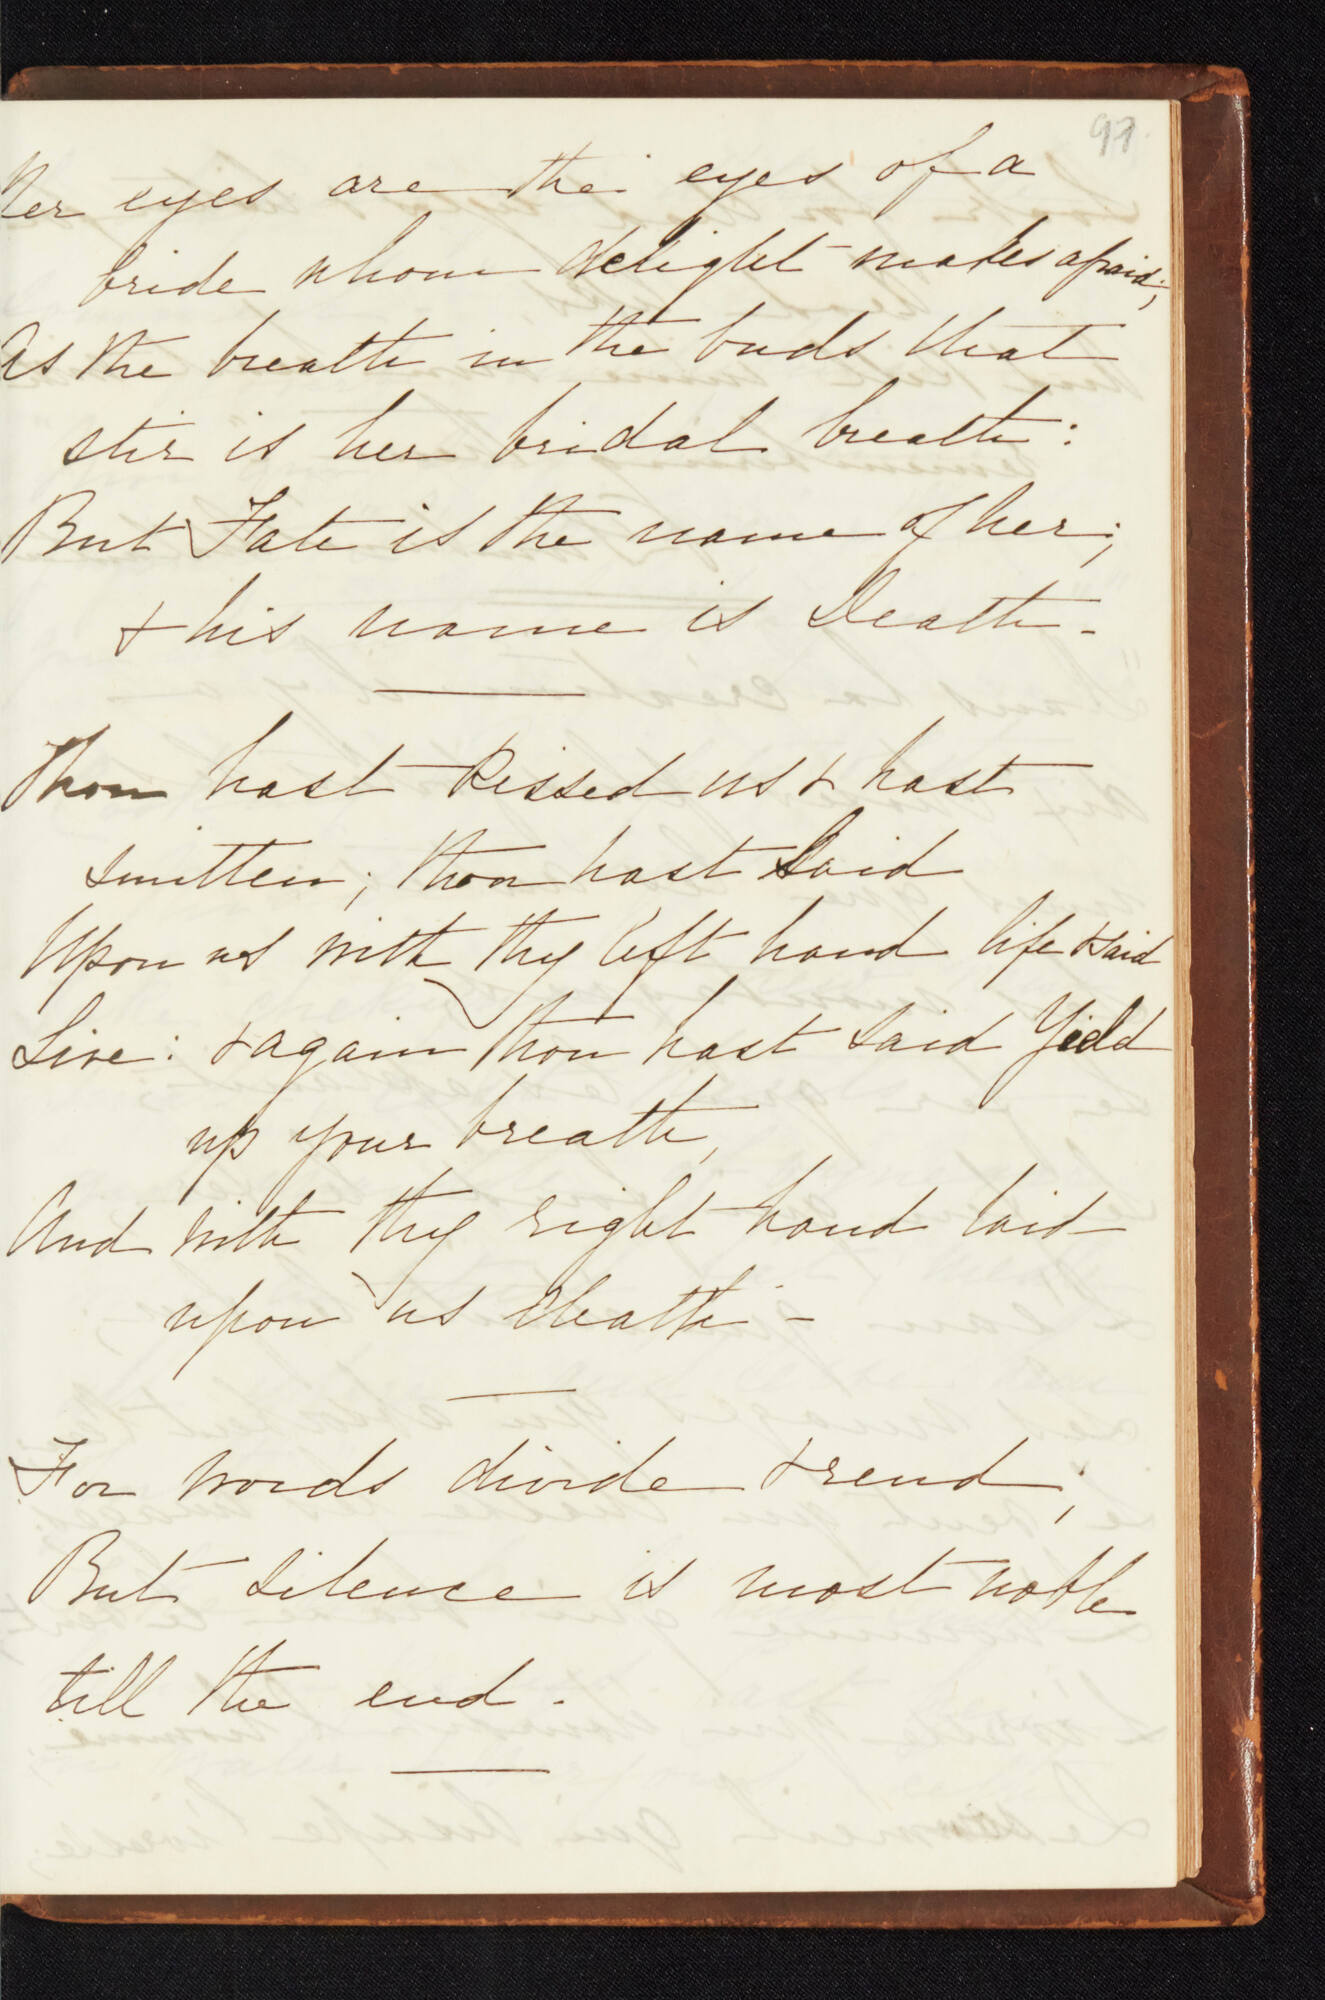 97.
Her eyes are the eyes of a
bride whom delight makes afraid;
As the breath in the buds that
stir is her bridal breath:
But Fate is the name of her;
& his name is Death.
Thou hast kissed us & hast
smitten; thou hast laid
Upon us with thy left hand life & said
Live: & again thou hast said Yield
up your breath,
And with thy right hand laid
upon us death -
For words divide & rend;
But silence is most noble
till the end.